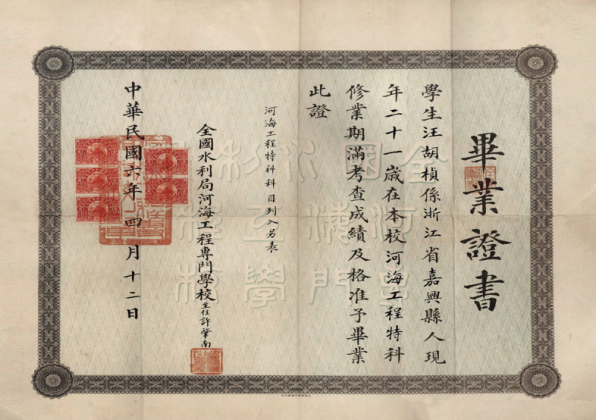 畢業證書
學生汪胡楨係浙江省嘉興縣人現
年二十一歲在本校河海工程特科
修業期滿考查成績及格准予畢業
此證
河海工程特科科目列入另表
全國水利局河海工程專門學校主任許肇南
中華民國六年四月十二日